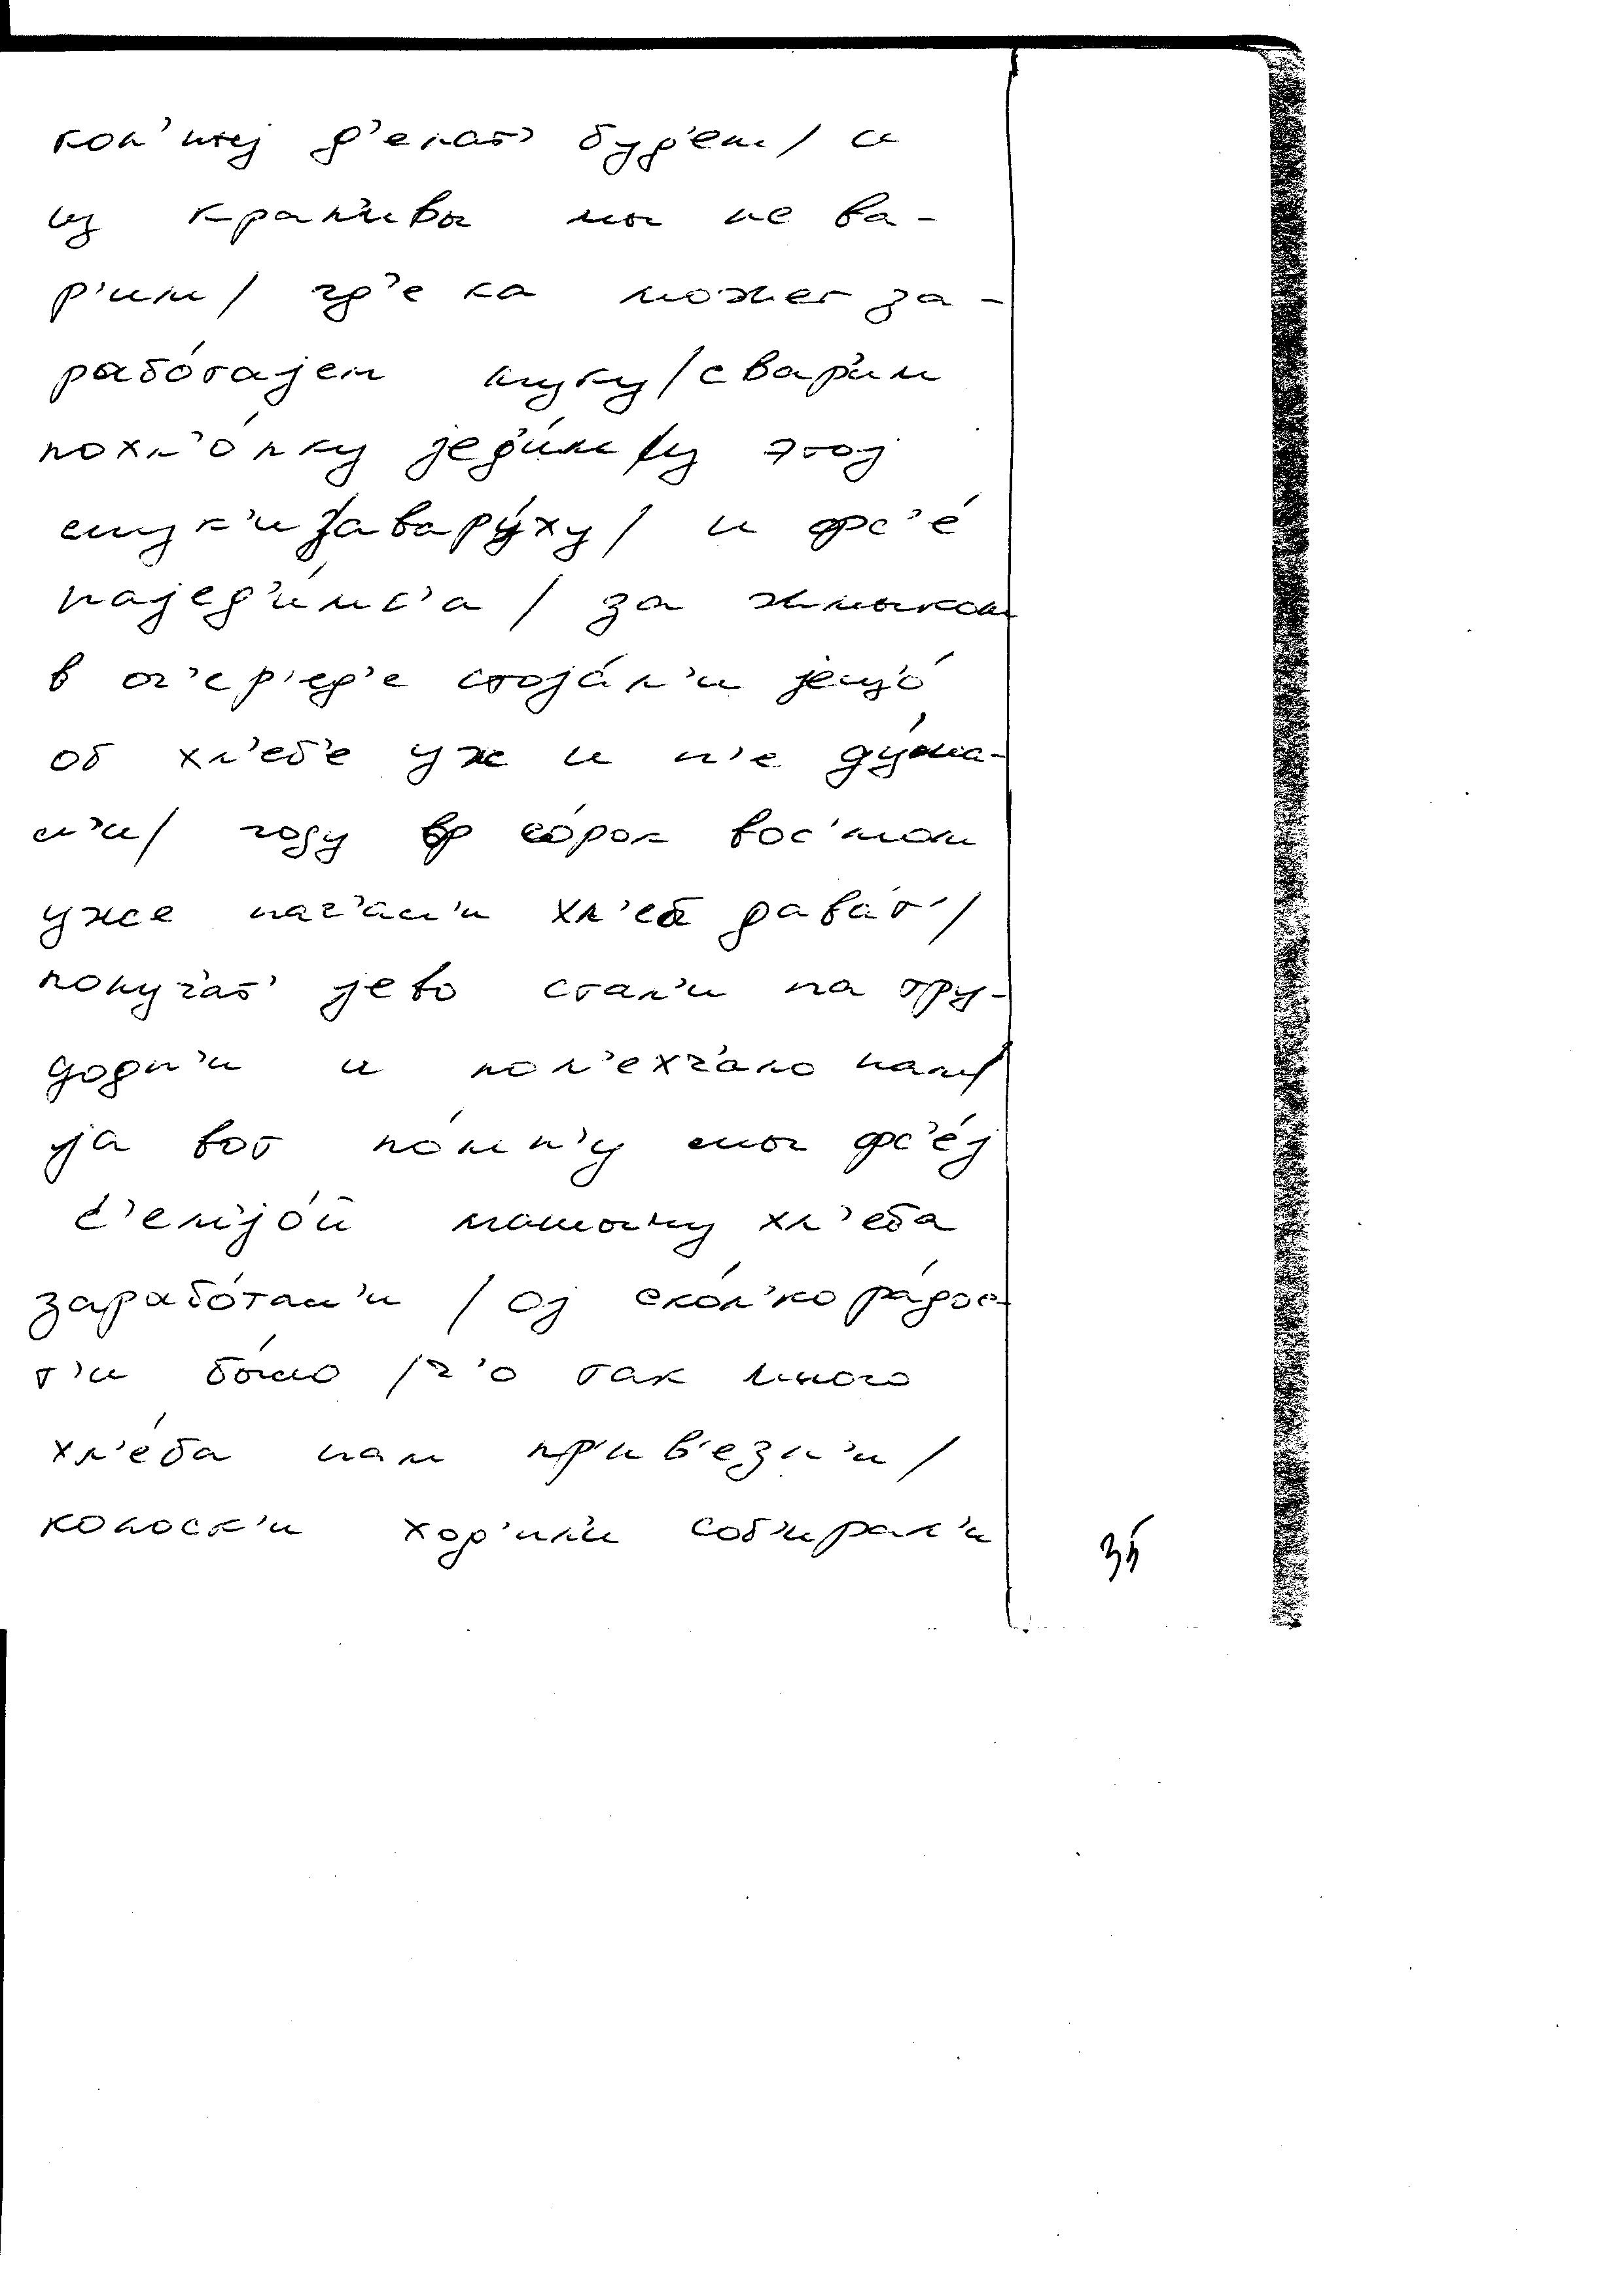 д'елат' буд'ем / и
из крап'ивы мы не ва-
р'им / гд'е ка может за-
рабо́тајем муку / сварим
похл'о́пку једи́м / из этој
мук'и завару́ху / и фс'е́
најед'и́мс'а / за жмыхом
в оч'ер'ед'е стоја́л'и јещ'о́
об хл'еб'е уж и н'е ду́ма-
л'и / году в со́рок вос'мом
уже нач'ал'и хл'еб дава́т' /
получ'ат' јево стал'и на тру-
додн'и и пол'ехч'ало нам /
ја вот по́мн'у мы фс'е́ј
с'емјо́й машыну хл'еба
зарабо́тал'и / ој ско́л'ко ра́дос-
т'и бы́ло / ч'о так много
хл'е́ба нам пр'ив'езл'и /
колоск'и ход'ил'и соб'ирал'и
35